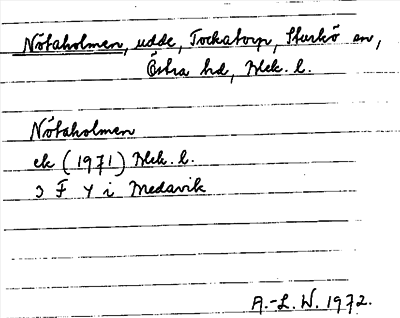 Nötaholmen, udde, Tockatorp, Sturkö sn,
Östra hd, Blek. l.
Nötaholmen
ek (1971) Blek. l.
Ɔ F Y i Medavik
A.-L. W. 1972.